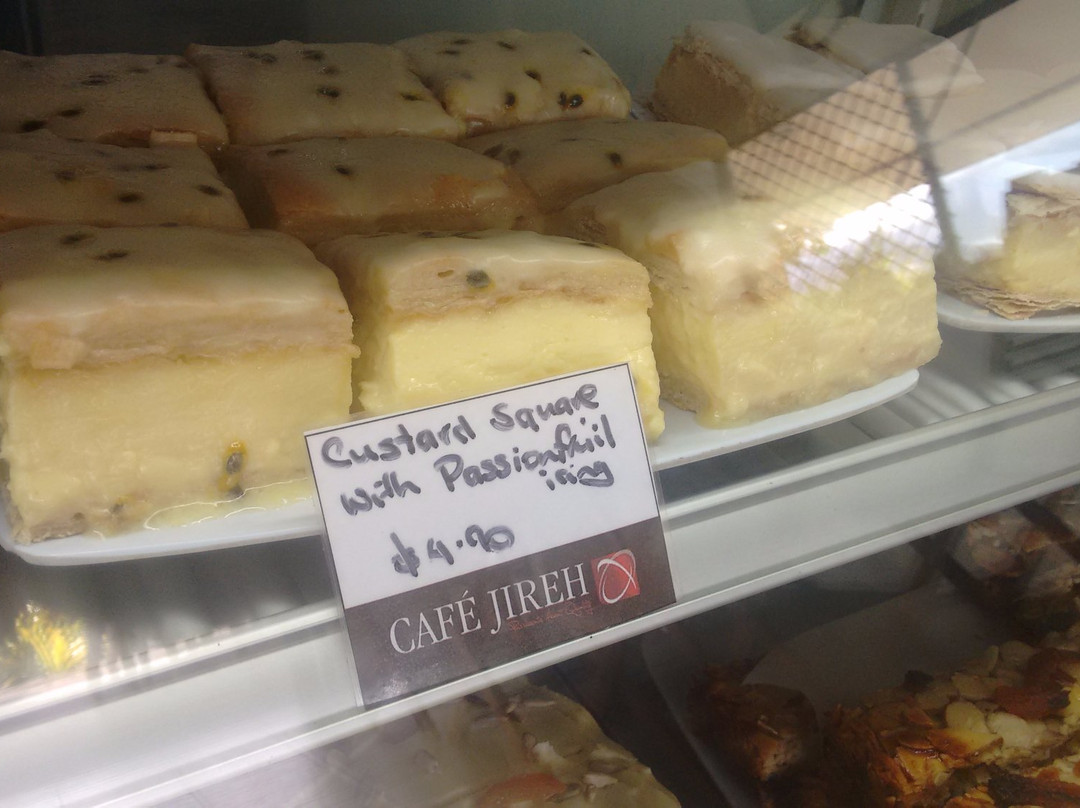 Custard Square
with Passionfruit
icing
$4.90
CAFÉ JIREH